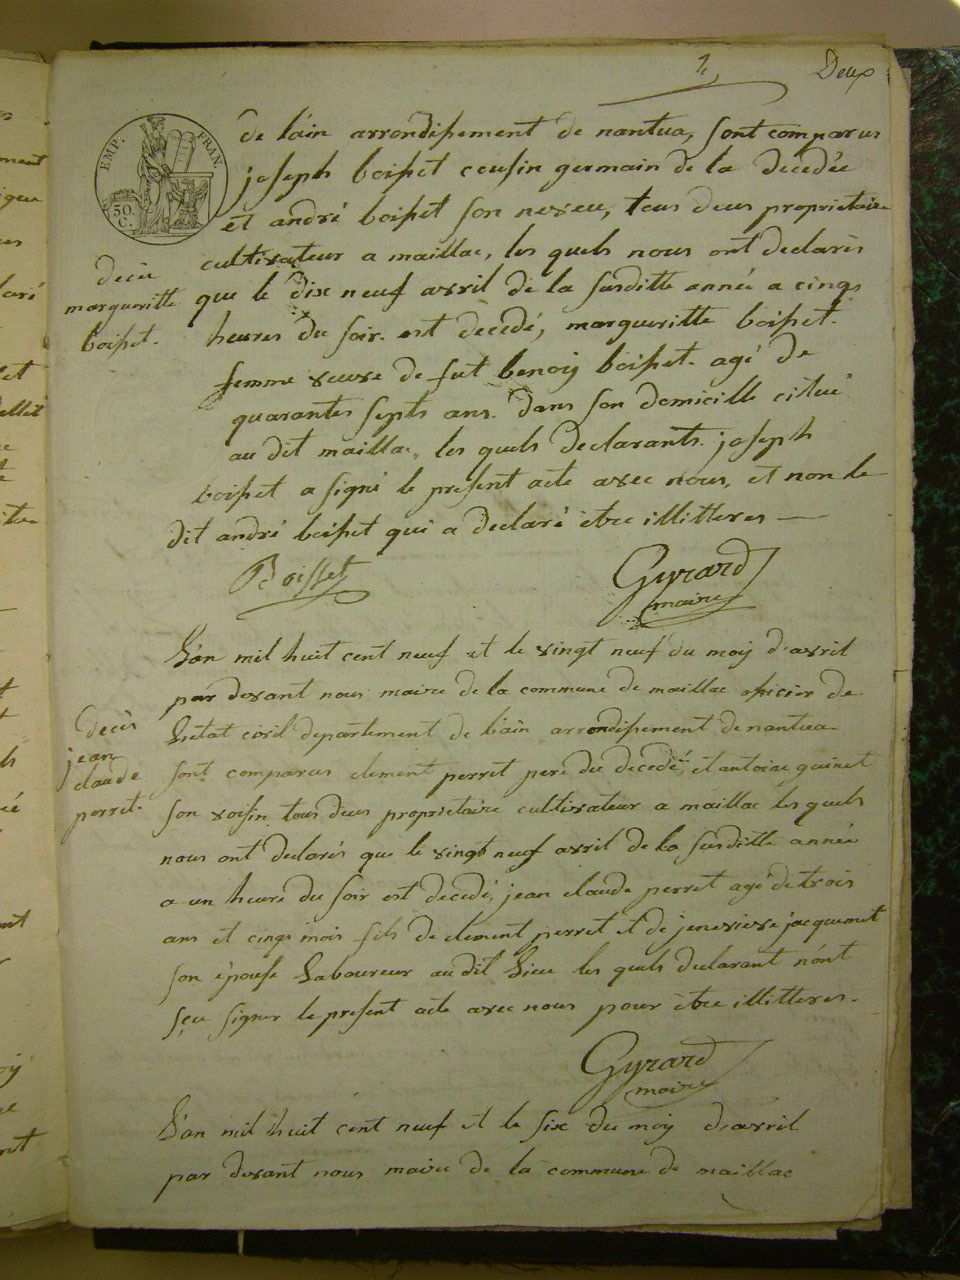 2 Deux
EMP. FRAN.
50. C.
de lain arrondissement de nantua, sont comparus
joseph boisset cousin germain de la decedée
et andré boisset son neveu, tous deux proprietaire
cultivateur a maillac, les quels nous ont declarés
que le dix neuf avril de la susditte année a cinqs
heures du soir est decedé, margueritte boisset
femme veuve de fut benoy boisset agé de
quarantes septs ans dans son domicille citué
au dit maillac, les quels declarants joseph
boisset a signé le present acte avec nous, et non le
dit andré boisset qui a declaré être illitteres
décée
margueritte
boisset.
Boisset Gyrard
maire
L'an mil huit cent neuf et le vingt neuf du moy d'avril
par devant nous maire de la commune de maillac oficier de
Letat civil departement de lain arrondissement de nantua
sont comparus clement perret pere du decedé, et antoine guinet
son voisin tous deux proprietaire cultivateur a maillac les quels
nous ont declarés que le vingt neuf avril de la susditte année
a un heure du soir est decedé, jean claude perret agé de trois
ans et cinqs mois fils de clement perret et de jenevieve jacquemet
son épouse Laboureur au dit Lieu les quels declarant n'ont
sçu signer le present acte avec nous pour être illitteres.
decès
jean
claude
perret.
Gyrard
maire
L'an mil huit cent neuf et le six du moy d'avril
par devant nous maire de la commune de maillac